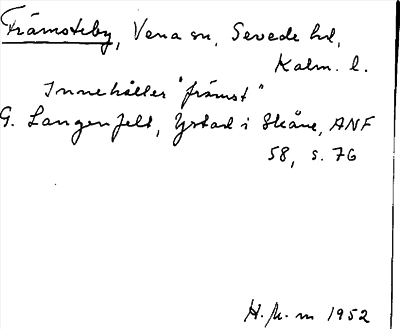 Främsteby, Vena sn, Sevede hd,
Kalm. l.
Innehåller "främst"
G. Langenfelt, Ystad i Skåne, ANF
58, s. 76
H. m 1952